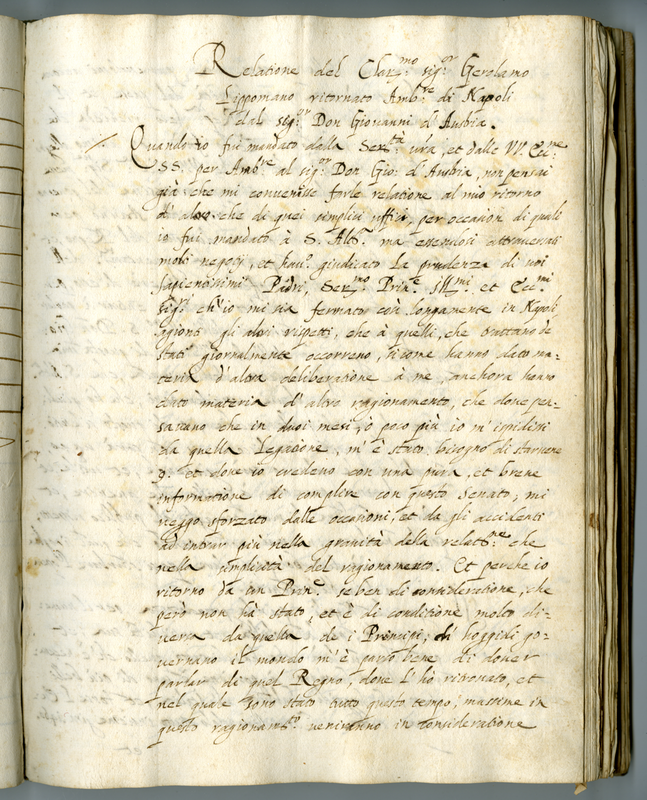 Relatione del Clar.mo sig.or Gerolamo
Lippomano ritornato Amb.re di Napoli
dal sig.or Don Giovanni d'Austria.
Quando io fui mandato dalla Ser.tà vra, et dalle VV. Ecc.me
SS. per Amb.re al sig.or Don Gio: d'Austria, non pensai
già che mi convenisse farle relatione al mio ritorno
d'altro che di quei semplici uffici per occasion di quali
io fui mandato à S. Alt.a ma essendosi attraversati
molti negocij, et hau.o giudicato la prudenza di voi
sapientissimi Padri, Ser.mo Prin.e Ill.mi et Ecc.mi
sig.ri ch'io mi sia fermato così longamente in Napoli
gl'altri rispetti, che à quelli, che trattano di
stati giornalmente occorreno, sicome hanno dato ma=
teria d'altra deliberatione à me, anchora hanno
dato materia d'altro ragionamento, che dove pen=
savano che in duoi mesi, o poco più io m'ispedissi
da quella Legatione, m'è stato bisogno di starvene
9. et dove io credevo con una pura, et breve
informatione di complire con questo senato; mi
veggo sforzato dalle occasioni, et da gli accidenti
ad intrar più nella gravità della relatt.ne che
nella simplicità del ragionamento. Et perche io
ritorno da un Prin.e se ben di consideratione, che
però non hà stato, et è di conditione molto di=
versa da quella de i Principi, ch' hoggidi go=
vernano il mondo m'è parso bene di dover
parlar di quel Regno, dove l'ho ritrovato, et
nel quale sono stato tutto questo tempo; massime in
questo ragionam.to veniranno in consideratione